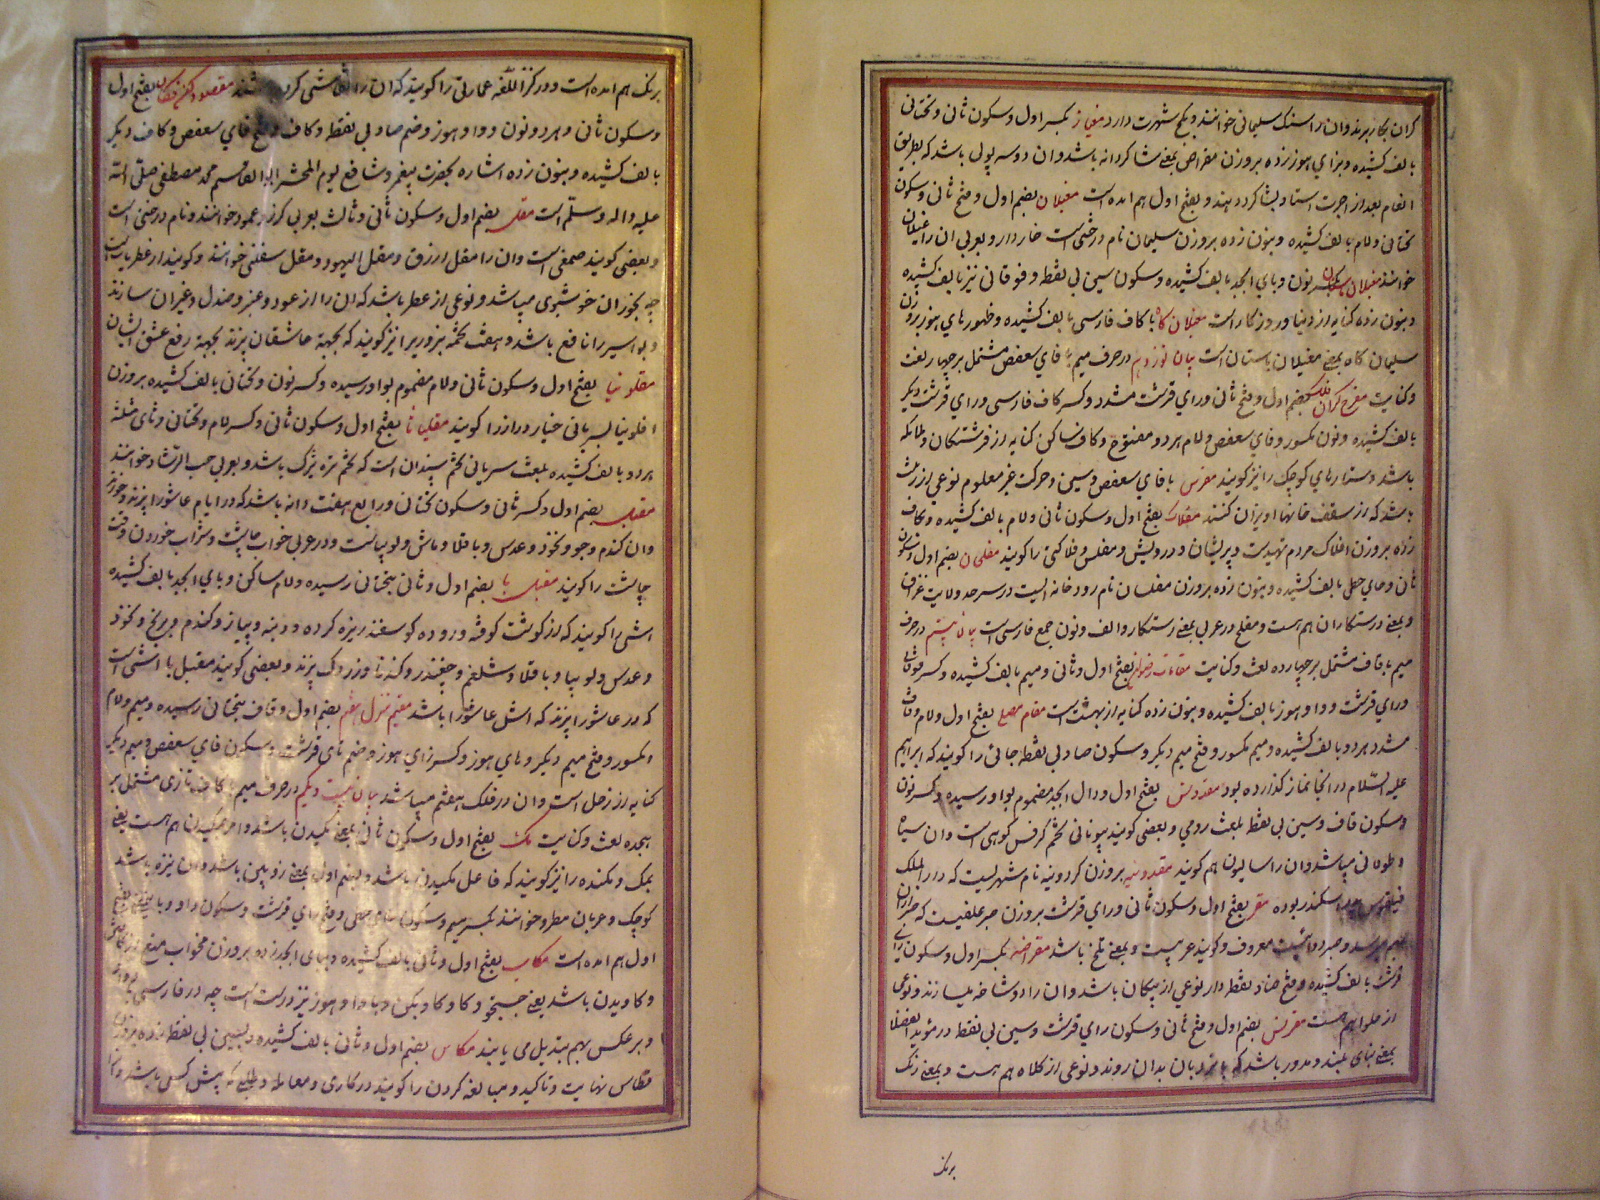 کران بکار برند و آن را سنک سلیمانی خوانند و بکج شهرت دارد مغیاز بکسر اول و سکون ثانی و تحتانی
بالف کشیده و بزای هوز زده بروزن مقراض بمعنی شاکردانه باشد و آن دو سه پولی باشد که بطریق
انعام بعد از اجرت استاد بشاکرد دهند و بفتح اول هم آمده است مغیلان بضم اول و فتح ثانی و سکون
تحتانی و لام بالف کشیده و بنون زده بروزن سلیمان نام درختی است خاردار و بعربی آن را غیلان
خوانند مغیلان باستان نون و بای ابجد بالف کشیده و سکون سین بی نقطه و فوقانی نیز بالف کشیده
و بنون زده کنایه از دنیا و روزکار است مغیلان کاه با کاف فارسی بالف کشیده و ظهور های هوز بروزن
سلیمان کاه بمعنی مغیلان باستان است بیان نوزدهم در حرف میم با فای سعفص مشتمل بر چهار لغت
و کنایت مفرح کران فلک بضم اول و فتح ثانی و رای قرشت مشدد و کسر کاف فارسی و رای قرشت دیکر
بالف کشیده و نون مکسور و فای سعفص و لام هر دو مفتوح و کاف ساکن کنایه از فرشتکان و ملائکه
باشد و ستارهای کوچک را نیز کویند مفرس با فای سعفص و سین و حرکت غیر معلوم نوعی از زینت
باشد که از سقف خانها آویزان کنند مفلاک بفتح اول و سکون ثانی و لام بالف کشیده و بکاف
زده بروزن افلاک مردم تهیدست و پریشان و درویش و مفلس و فلاکتی را کویند مفلحان بضم اول و سکون
ثانی و حای حطی بالف کشیده و بنون زده بروزن مفلسان نام رودخانه ایست در سرحد ولایت عراق
و بمعنی رستکاران هم هست و مفلح در عربی بمعنی رستکار و الف و نون جمع فارسی است بیان بیستم در حرف
میم با قاف مشتمل بر چهارده لغت و کنایت مقامات رضوان بفتح اول و ثانی و میم بالف کشیده و کسر فوقانی
و رای قرشت و واو هوز بالف کشیده و بنون زده کنایه از بهشت است مقام مصلی بفتح اول و لام و قاف
مشدد هر دو بالف کشیده و میم مکسور و فتح میم دیکر و سکون صاد بی نقطه جائی را کویند که ابراهیم
علیه السلام در آنجا نماز کذارده بود مقدونس بفتح اول و دال ابجد مضموم بواو رسیده و کسر نون
و سکون قاف و سین بی نقطه بلغت رومی و بعضی کویند بیونانی تخم کرفس کوهی است و آن سیاه
و طولانی میباشد و آن را سالیون هم کویند مقدونیه بروزن کردونیه نام شهریست که دار الملک
فیلقوس سکندر بوده مقر بفتح اول و سکون ثانی و رای قرشت بروزن صبر علفیست که صبر از آن
بهم میرسد و معروف و کویند عربیست و بمعنی تلخ باشد مقراضه بکسر اول و سکون ثانی و رای
قرشت بالف کشیده و فتح ضاد نقطه دار نوعی از پیکان باشد و آن را دو شاخه میسازند و نوعی
از حلوا هم هست مقرنس بضم اول و فتح ثانی و سکون رای قرشت و سین بی نقطه در مؤید الفضلا
بمعنی بنای بلند و مدور باشد که با نردبان بدان روند و نوعی از کلاه هم هست و بمعنی رنک
برنک
برنک هم آمده است و در کنز اللغه عمارتی را کویند که آن را نقاشی کرده باشند مقصود کن فکان بفتح اول
و سکون ثانی و هر دو نون و واو هوز و ضم صاد بی نقطه و کاف و فتح فای سعفص و کاف دیکر
بالف کشیده و بنون زده اشاره بحضرت پیغمبر و شافع یوم المحشر ابو القاسم محمد مصطفی صلی الله
علیه و اله و سلم است مقل بضم اول و سکون ثانی و ثالث بعربی کرز و عمود خوانند و نام درختی است
و بعضی کویند صمغی است و آن را مقل ازرق و مقل الیهود و مقل سقلی خوانند و کویند از عطریات است
چه بخور آن خوشبوی میباشد و نوعی از عطر باشد که آن را از عود و عنبر و صندل و غیر آن سازند
و بواسیر را نافع باشد و هفت تخمه بزوریر را نیز کویند که بجهة عاشقان پزند بجهة رفع عشق ایشان
مقلونیا بفتح اول و سکون ثانی و لام مضموم بواو رسیده و کسر نون و تحتانی بالف کشیده بروزن
افلونیا بسریانی خیار دراز را کویند مقلیاثا بفتح اول و سکون ثانی و کسر لام و تحتانی و ثای مثلثه
هر دو بالف کشیده بلغت سریانی تخم سپندان است که تخم تره تیزک باشد و بعربی حب الرشاد خوانند
مقیل بضم اول و کسر ثانی و سکون تحتانی و رابع هفت دانه باشد که در ایام عاشورا پزند و خورند
و آن کندم و جو و نخود و عدس و باقلا و ماش و لوبیاست و در عربی خواب چاشت و شراب خوردن وقت
چاشت را کویند مقیل با بضم اول و ثانی بتحتانی رسیده و لام ساکن و بای ابجد بالف کشیده
آشی را کویند که از کوشت کوفته و روده کوسفند ریزه کرده و دنبه و پیاز و کندم و برنج و نخود
و عدس و لوبیا و باقلا و شلغم و چغندر و کندنا و زردک پزند و بعضی کویند مقیل با آشی است
که در عاشورا پزند که آش عاشورا باشد مقیم منزل هفتم بضم اول و قاف بتحتانی رسیده و میم و لام
مکسور و فتح میم دیکر و های هوز و کسر زای هوز و ضم تای قرشت و سکون فای سعفص و میم دیکر
کنایه از زحل است و آن در فلک هفتم میباشد بیان بیست و یکم در حرف میم با کاف تازی مشتمل بر
هیجده لغت و کنایت مک بفتح اول و سکون ثانی بمعنی مکیدن باشد و امر مکیدن هم هست یعنی
بمک و مکنده را نیز کویند که فاعل مکیدن باشد و بضم اول بمعنی زوبین باشد و آن نیزه باشد
کوچک و عربان مطرد خوانند بکسر میم و سکون طای حطی و فتح رای قرشت و سکون دال
اول هم آمده است مکاب بفتح اول و ثانی بالف کشیده و ببای ابجد زده بروزن مخواب منع
و کاویدن باشد یعنی جستجو و کاو کاو بکن و با واو هوز نیز درست است چه در فارسی با بواو
و بر عکس بهم تبدیل می یابند مکاس بضم اول و ثانی بالف کشیده و بسین بی نقطه زده بروزن
مکاس نهایت و تاکید و مبالغه کردن را کویند در کاری و معامله و طلبی که پیش کسی باشد و